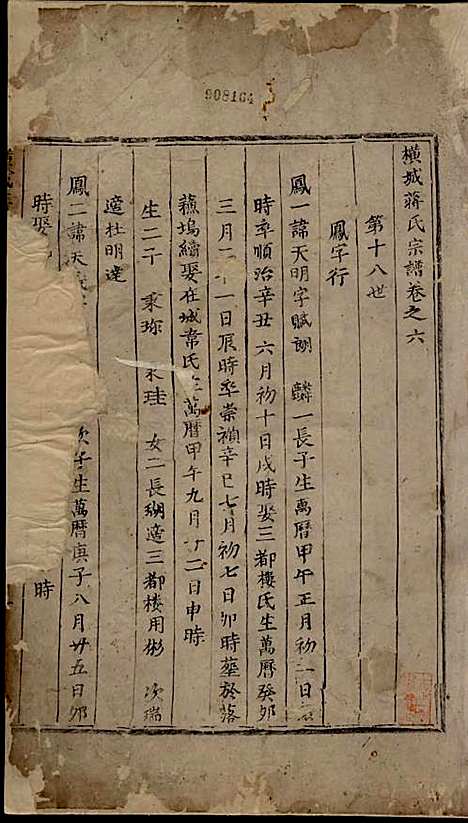 908164
橫城蔣氏宗譜卷之六
第十八世
鳳字行
鳳一諱天明字賦湖 麟一長子生萬曆甲午正月初一日
時卒順治辛丑六月初十日戌時娶三都樓氏生萬曆癸卯
三月二十一日辰時卒崇禎辛巳七月初七日卯時葬於落
蘓塢續娶在城常氏生萬曆甲午九月廿二日申時
生二子 秉珎 秉珪 女二長瑚適三都楼用彬 次瑞
適杜明達
鳳二諱天 次子生萬曆庚子八月廿五日卯
時娶 時